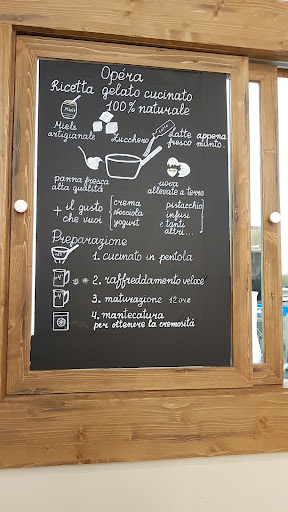 Opéra
Ricetta gelato cucinato
100% naturale
Miele
artigianale
Zucchero
Latte appena
fresco munto.
panna fresca
alta qualità
uova
allevate a terra
+ il gusto
che vuoi
crema
nocciola
yogurt
pistacchio
infusi
e tanti
altri...
Preparazione
1. cucinato in pentola
+4°
** 2. raffreddamento veloce
3. maturazione 12 ore
4. mantecatura
per ottenere la cremosità